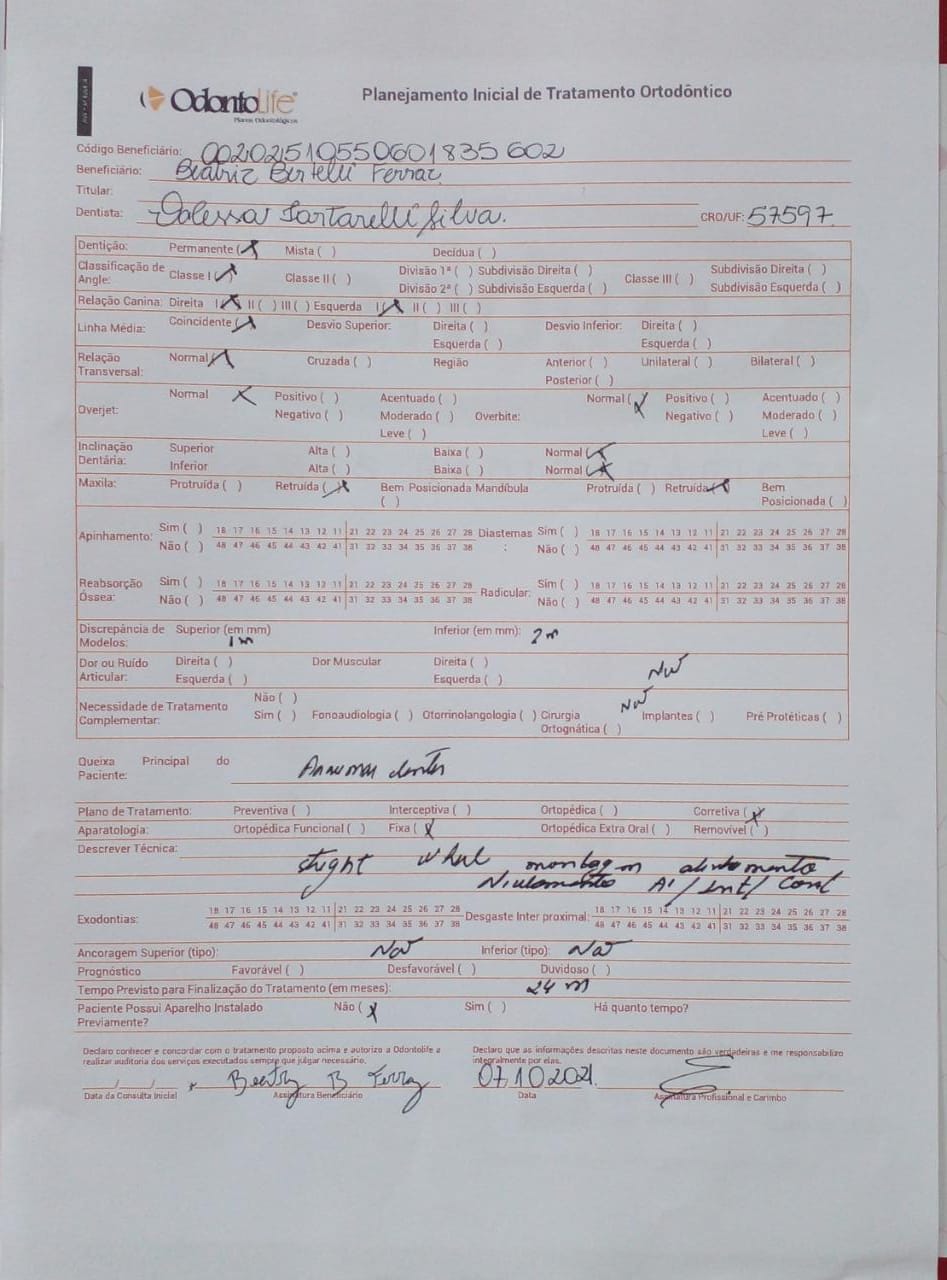 OdontoLife
Planos Odontológicos
Planejamento Inicial de Tratamento Ortodôntico
Código Beneficiário: 00202510550601835602
Beneficiário: Beatriz Bertelli Ferraz
Titular:
Dentista: Valessa Sartarelli Silva. CRO/UF: 57597
Dentição: Permanente (X) Mista ( ) Decídua ( )
Classificação de Angle: Classe I (X) Classe II ( ) Divisão 1ª ( ) Subdivisão Direita ( ) Classe III ( ) Subdivisão Direita ( )
Divisão 2ª ( ) Subdivisão Esquerda ( ) Subdivisão Esquerda ( )
Relação Canina: Direita I (X) II ( ) III ( ) Esquerda I (X) II ( ) III ( )
Linha Média: Coincidente (X) Desvio Superior: Direita ( ) Desvio Inferior: Direita ( )
Esquerda ( ) Esquerda ( )
Relação Transversal: Normal (X) Cruzada ( ) Região Anterior ( ) Unilateral ( ) Bilateral ( )
Posterior ( )
Overjet: Normal X Positivo ( ) Acentuado ( ) Overbite: Normal (X) Positivo ( ) Acentuado ( )
Negativo ( ) Moderado ( ) Negativo ( ) Moderado ( )
Leve ( ) Leve ( )
Inclinação Dentária: Superior Alta ( ) Baixa ( ) Normal (X)
Inferior Alta ( ) Baixa ( ) Normal (X)
Maxila: Protruída ( ) Retruída (X) Bem Posicionada ( ) Mandíbula Protruída ( ) Retruída (X) Bem Posicionada ( )
Apinhamento: Sim ( ) 18 17 16 15 14 13 12 11 21 22 23 24 25 26 27 28 Diastemas: Sim ( ) 18 17 16 15 14 13 12 11 21 22 23 24 25 26 27 28
Não ( ) 48 47 46 45 44 43 42 41 31 32 33 34 35 36 37 38 Não ( ) 48 47 46 45 44 43 42 41 31 32 33 34 35 36 37 38
Reabsorção Óssea: Sim ( ) 18 17 16 15 14 13 12 11 21 22 23 24 25 26 27 28 Radicular: Sim ( ) 18 17 16 15 14 13 12 11 21 22 23 24 25 26 27 28
Não ( ) 48 47 46 45 44 43 42 41 31 32 33 34 35 36 37 38 Não ( ) 48 47 46 45 44 43 42 41 31 32 33 34 35 36 37 38
Discrepância de Modelos: Superior (em mm) 1 m Inferior (em mm): 2 m
Dor ou Ruído Articular: Direita ( ) Dor Muscular Direita ( ) Não
Esquerda ( ) Esquerda ( )
Necessidade de Tratamento Complementar: Não ( ) Não
Sim ( ) Fonoaudiologia ( ) Otorrinolangologia ( ) Cirurgia Ortognática ( ) Implantes ( ) Pré Protéticas ( )
Queixa Principal do Paciente: Arrumar dentes
Plano de Tratamento: Preventiva ( ) Interceptiva ( ) Ortopédica ( ) Corretiva (X)
Aparatologia: Ortopédica Funcional ( ) Fixa (X) Ortopédica Extra Oral ( ) Removível ( )
Descrever Técnica:
montagem alinhamento
Nivelamento
Exodontias: 18 17 16 15 14 13 12 11 21 22 23 24 25 26 27 28 Desgaste Inter proximal: 18 17 16 15 14 13 12 11 21 22 23 24 25 26 27 28
48 47 46 45 44 43 42 41 31 32 33 34 35 36 37 38 48 47 46 45 44 43 42 41 31 32 33 34 35 36 37 38
Ancoragem Superior (tipo): Não Inferior (tipo): Não
Prognóstico Favorável ( ) Desfavorável ( ) Duvidoso ( )
Tempo Previsto para Finalização do Tratamento (em meses): 24 m
Paciente Possui Aparelho Instalado Previamente? Não (X) Sim ( ) Há quanto tempo?
Declaro conhecer e concordar com o tratamento proposto acima e autorizo a Odontolife a
realizar auditoria dos serviços executados sempre que julgar necessário.
Declaro que as informações descritas neste documento são verdadeiras e me responsabilizo
integralmente por elas.
__/__/__ Beatriz B Ferraz 07.10.2021.
Data da Consulta Inicial Assinatura Beneficiário Data Assinatura Profissional e Carimbo